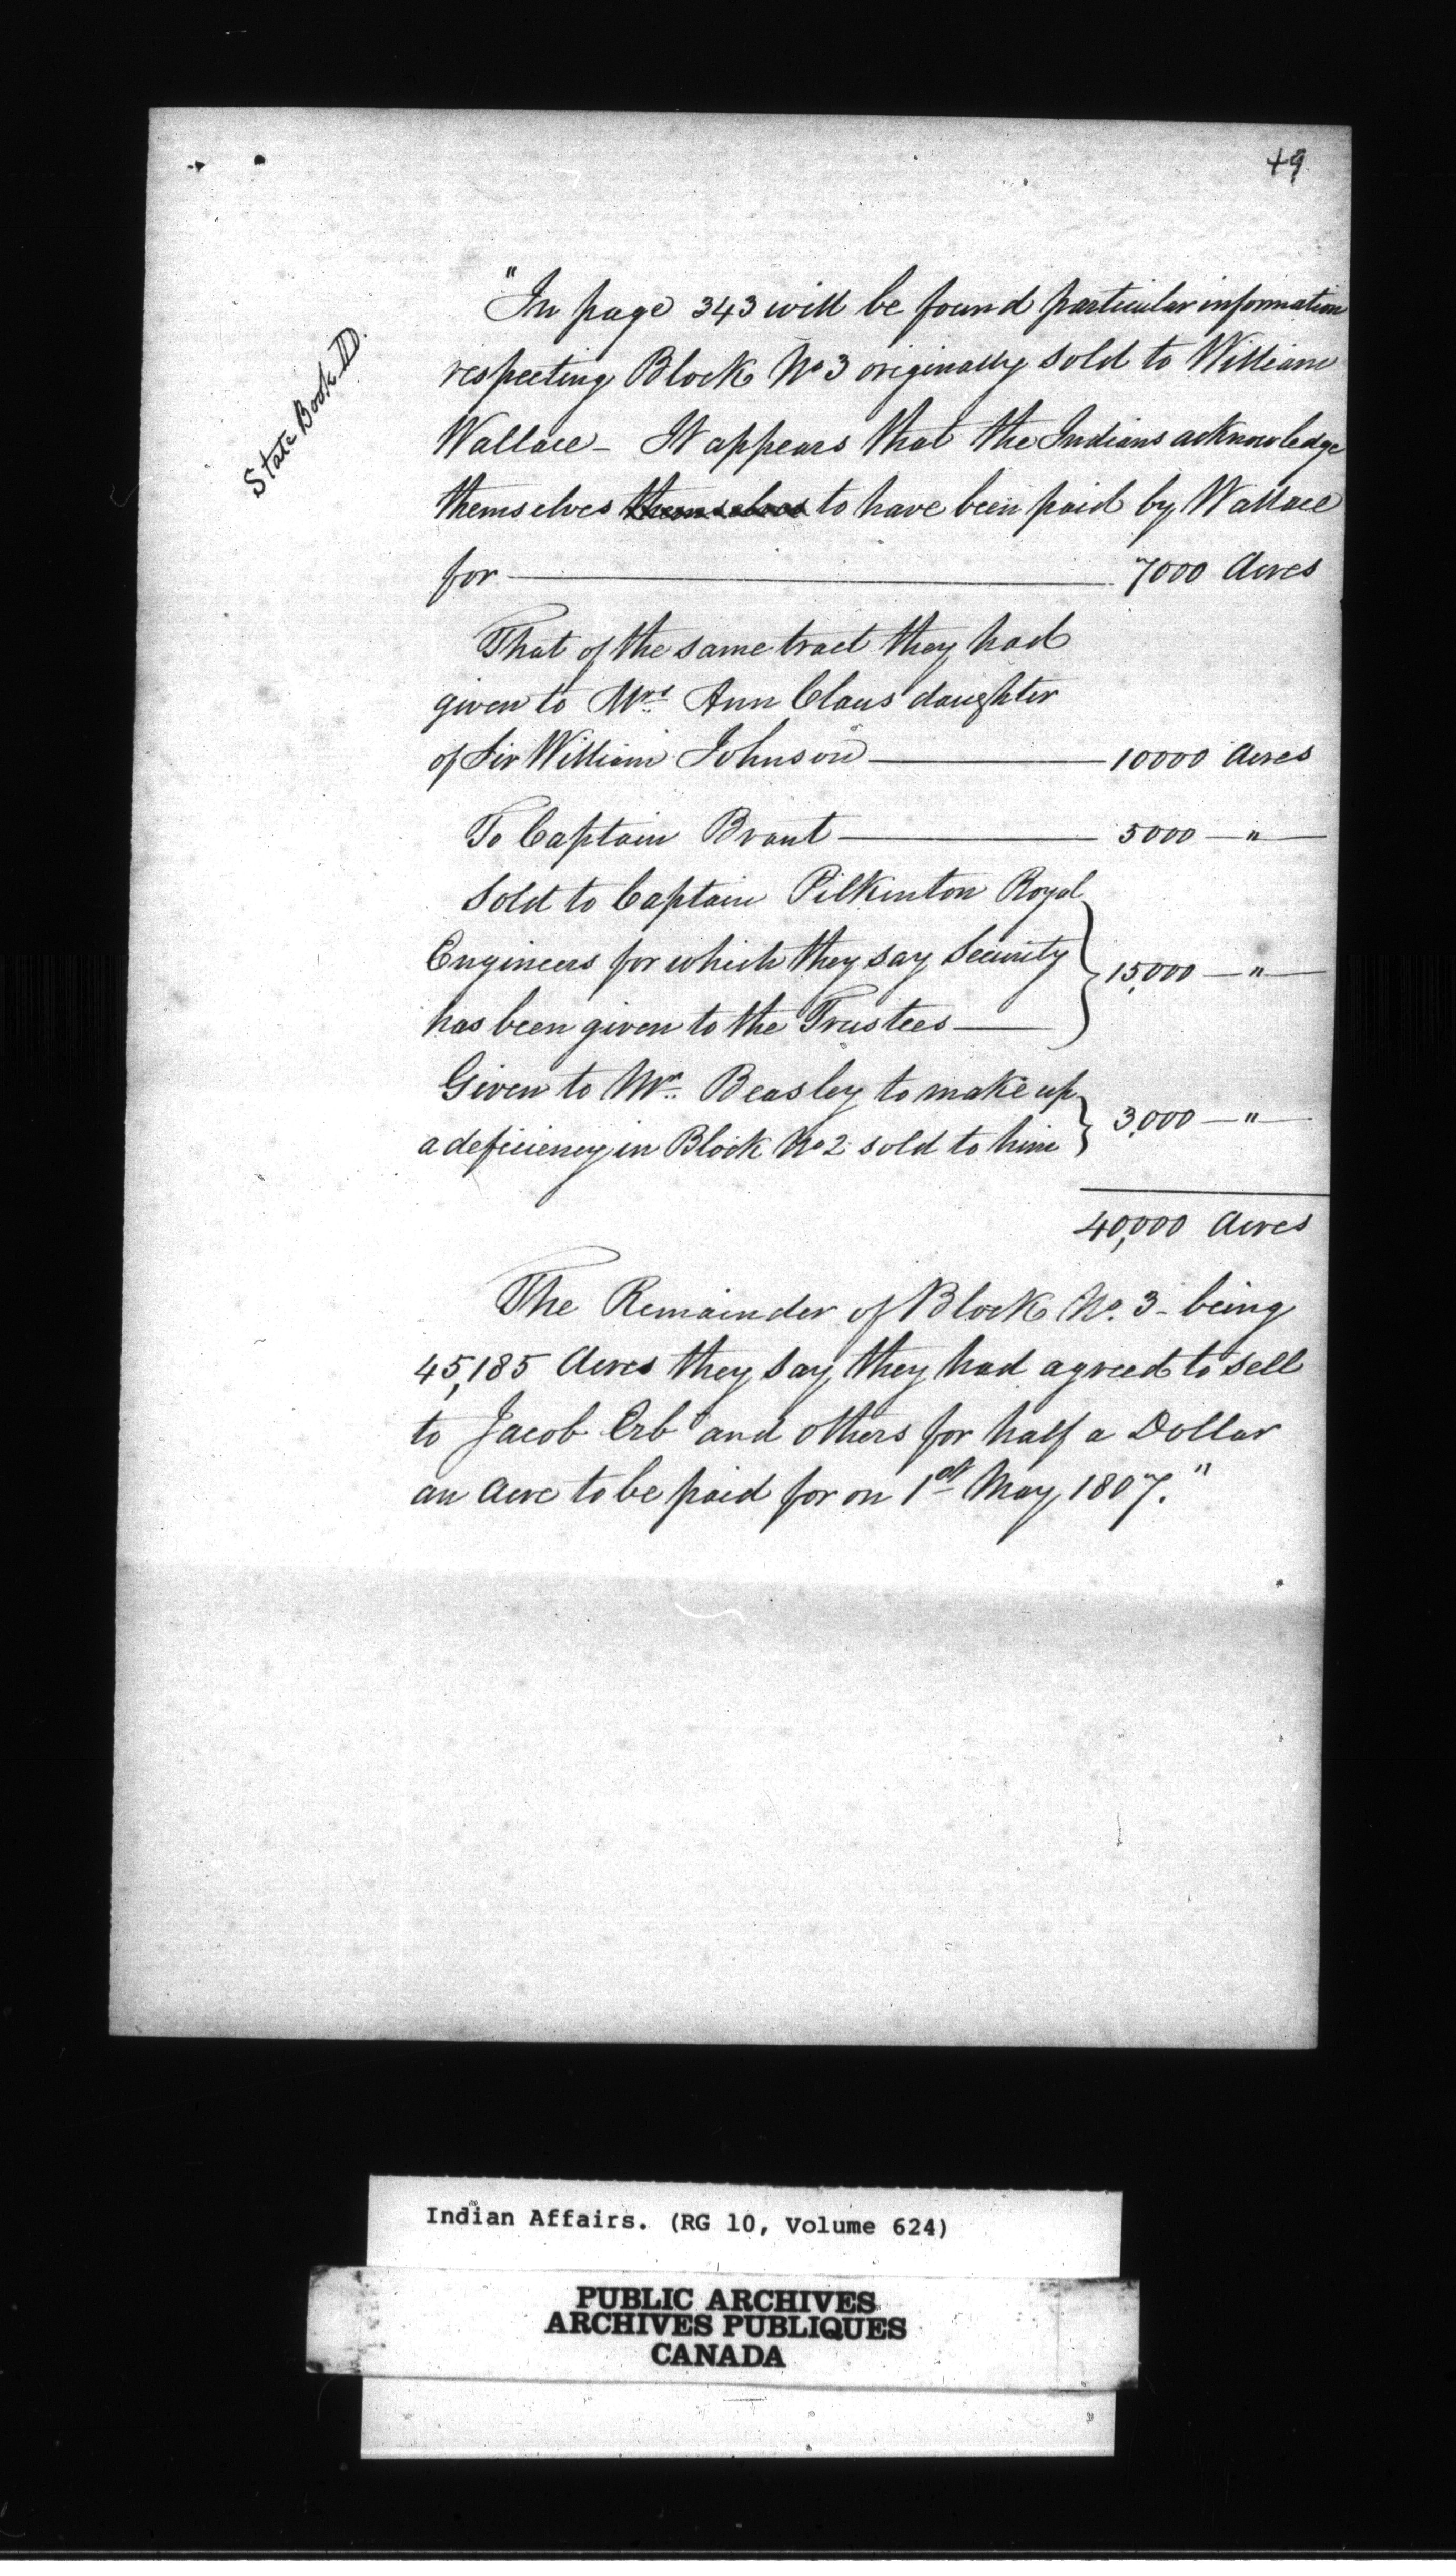 49
State Book D.
"In page 343 will be found particular information
respecting Block No 3 originally sold to William
Wallace - It appears that the Indians acknowledge
themselves themselves to have been paid by Wallace
for 7000 Acres
That of the same tract they had
given to Mrs Ann Claus daughter
of Sir William Johnson 10000 Acres
To Captain Brant 5000 — " —
Sold to Captain Pilkinton Royal
Engineers for which they say Security
has been given to the Trustees } 15,000 — " —
Given to Mr. Beasley to make up
a deficiency in Block No 2 sold to him } 3,000 — " —
40,000 Acres
The Remainder of Block No. 3 - being
45,185 Acres they say they had agreed to sell
to Jacob Erb and others for half a Dollar
an Acre to be paid for on 1st May 1807."
Indian Affairs. (RG 10, Volume 624)
PUBLIC ARCHIVES
ARCHIVES PUBLIQUES
CANADA